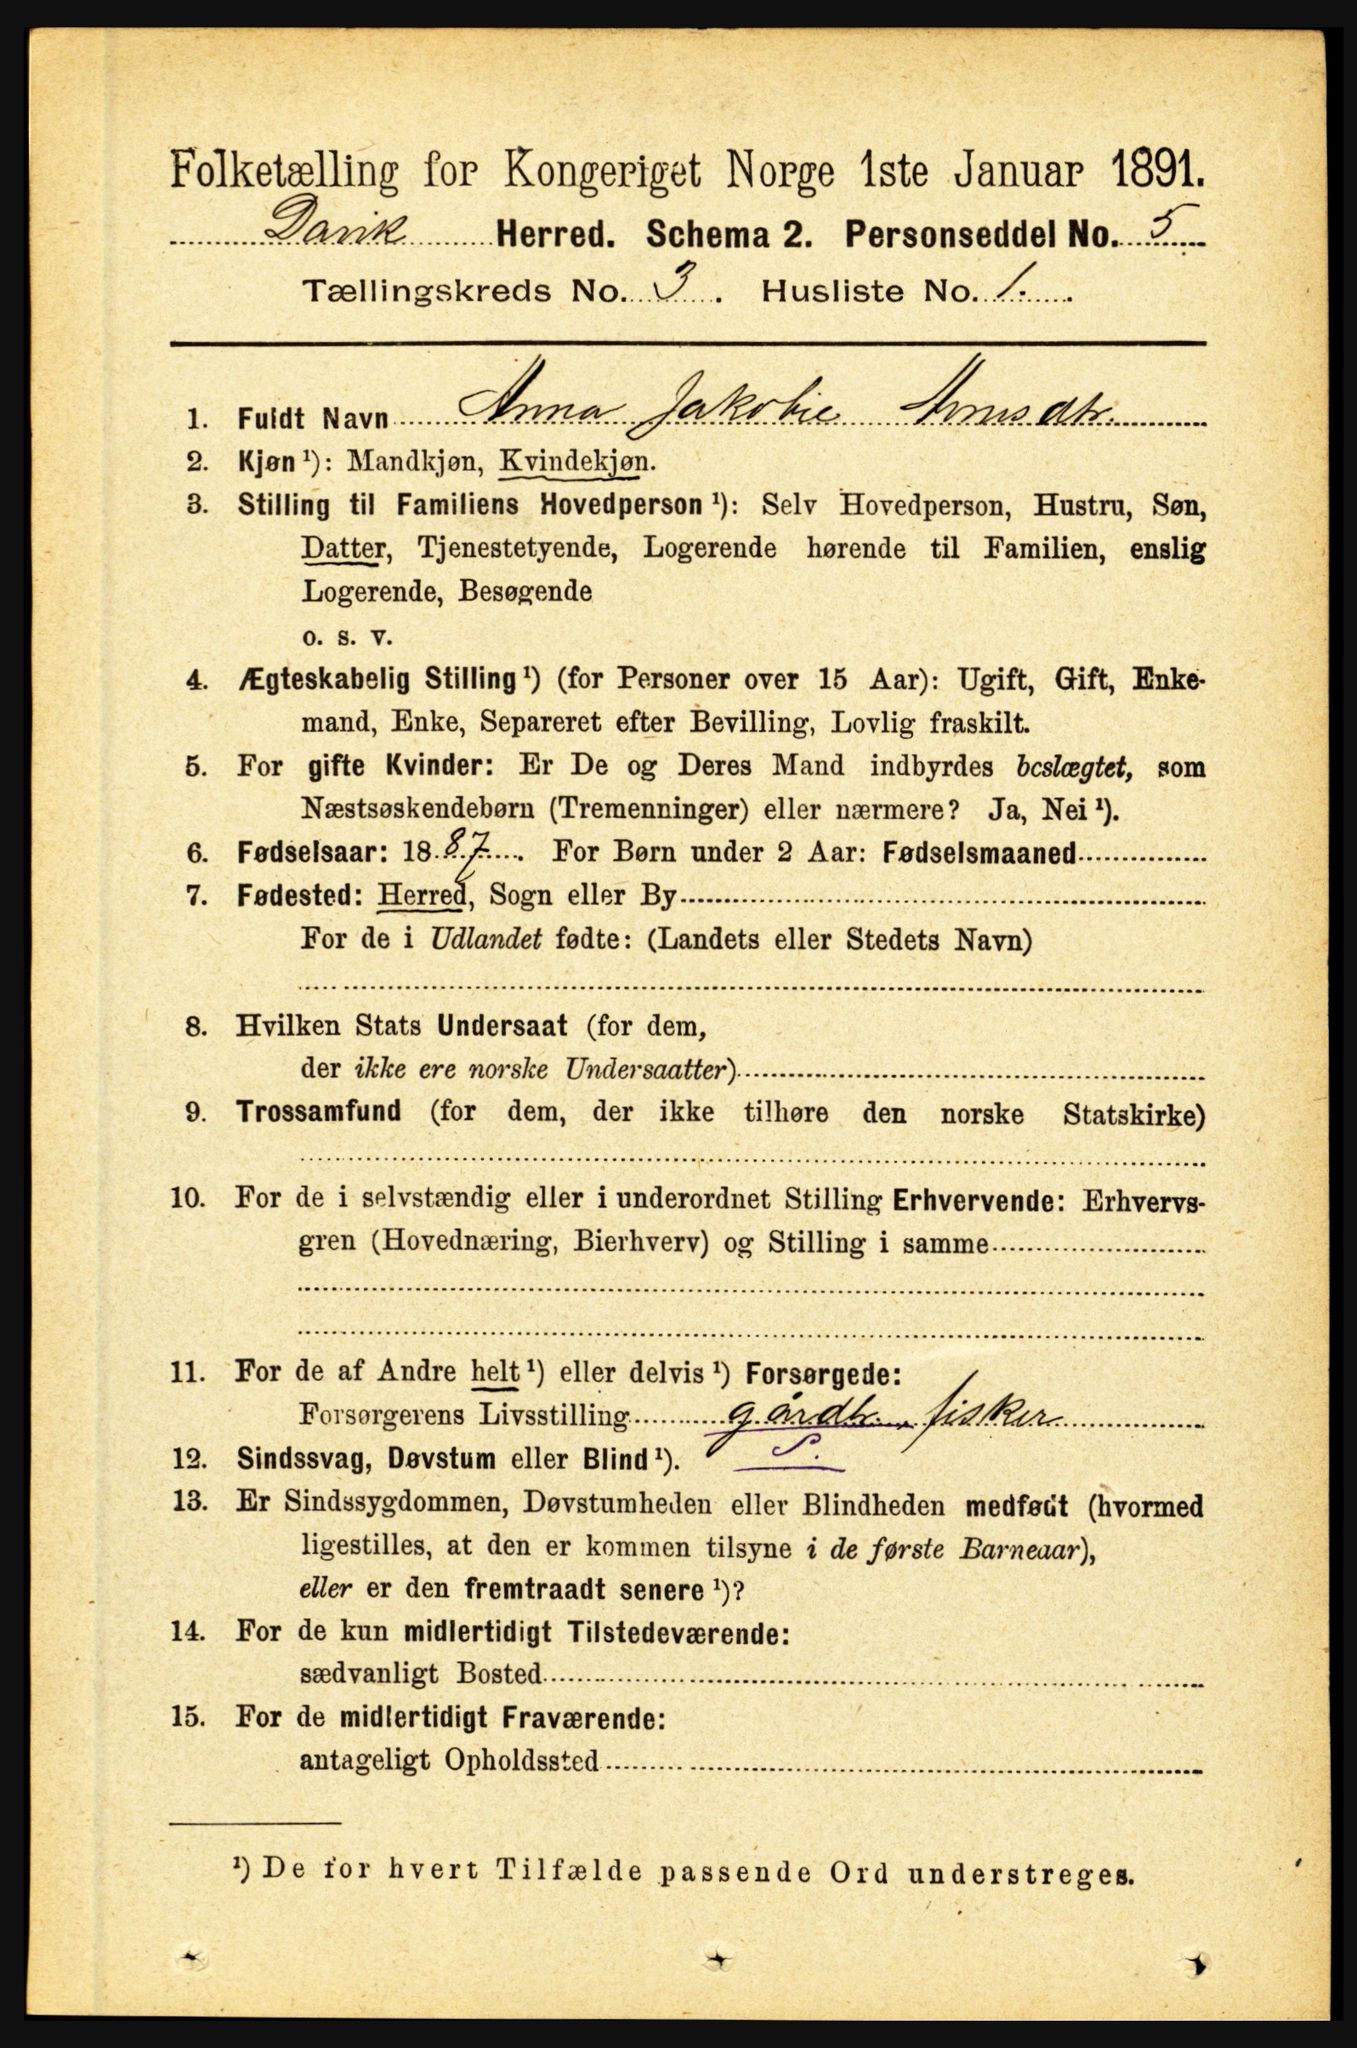 Folketælling for Kongeriget Norge 1ste Januar 1891.
Davik Herred. Schema 2. Personseddel No. 5
Tællingskreds No. 3. Husliste No. 1.
1. Fuldt Navn Anna Jakobie Arnsdtr.
2. Kjøn ¹): Mandkjøn, Kvindekjøn.
3. Stilling til Familiens Hovedperson ¹): Selv Hovedperson, Hustru, Søn,
Datter, Tjenestetyende, Logerende hørende til Familien, enslig
Logerende, Besøgende
o. s. v.
4. Ægteskabelig Stilling ¹) (for Personer over 15 Aar): Ugift, Gift, Enke-
mand, Enke, Separeret efter Bevilling, Lovlig fraskilt.
5. For gifte Kvinder: Er De og Deres Mand indbyrdes beslægtet, som
Næstsøskendebørn (Tremenninger) eller nærmere? Ja, Nei ¹).
6. Fødselsaar: 1887. For Børn under 2 Aar: Fødselsmaaned
7. Fødested: Herred, Sogn eller By
For de i Udlandet fødte: (Landets eller Stedets Navn)
8. Hvilken Stats Undersaat (for dem,
der ikke ere norske Undersaatter)
9. Trossamfund (for dem, der ikke tilhøre den norske Statskirke)
10. For de i selvstændig eller i underordnet Stilling Erhvervende: Erhvervs-
gren (Hovednæring, Bierhverv) og Stilling i samme
11. For de af Andre helt ¹) eller delvis ¹) Forsørgede:
Forsørgerens Livsstilling gårdbr. fisker
S.
12. Sindssvag, Døvstum eller Blind ¹).
13. Er Sindssygdommen, Døvstumheden eller Blindheden medfødt (hvormed
ligestilles, at den er kommen tilsyne i de første Barneaar),
eller er den fremtraadt senere ¹)?
14. For de kun midlertidigt Tilstedeværende:
sædvanligt Bosted
15. For de midlertidigt Fraværende:
antageligt Opholdssted
¹) De for hvert Tilfælde passende Ord understreges.